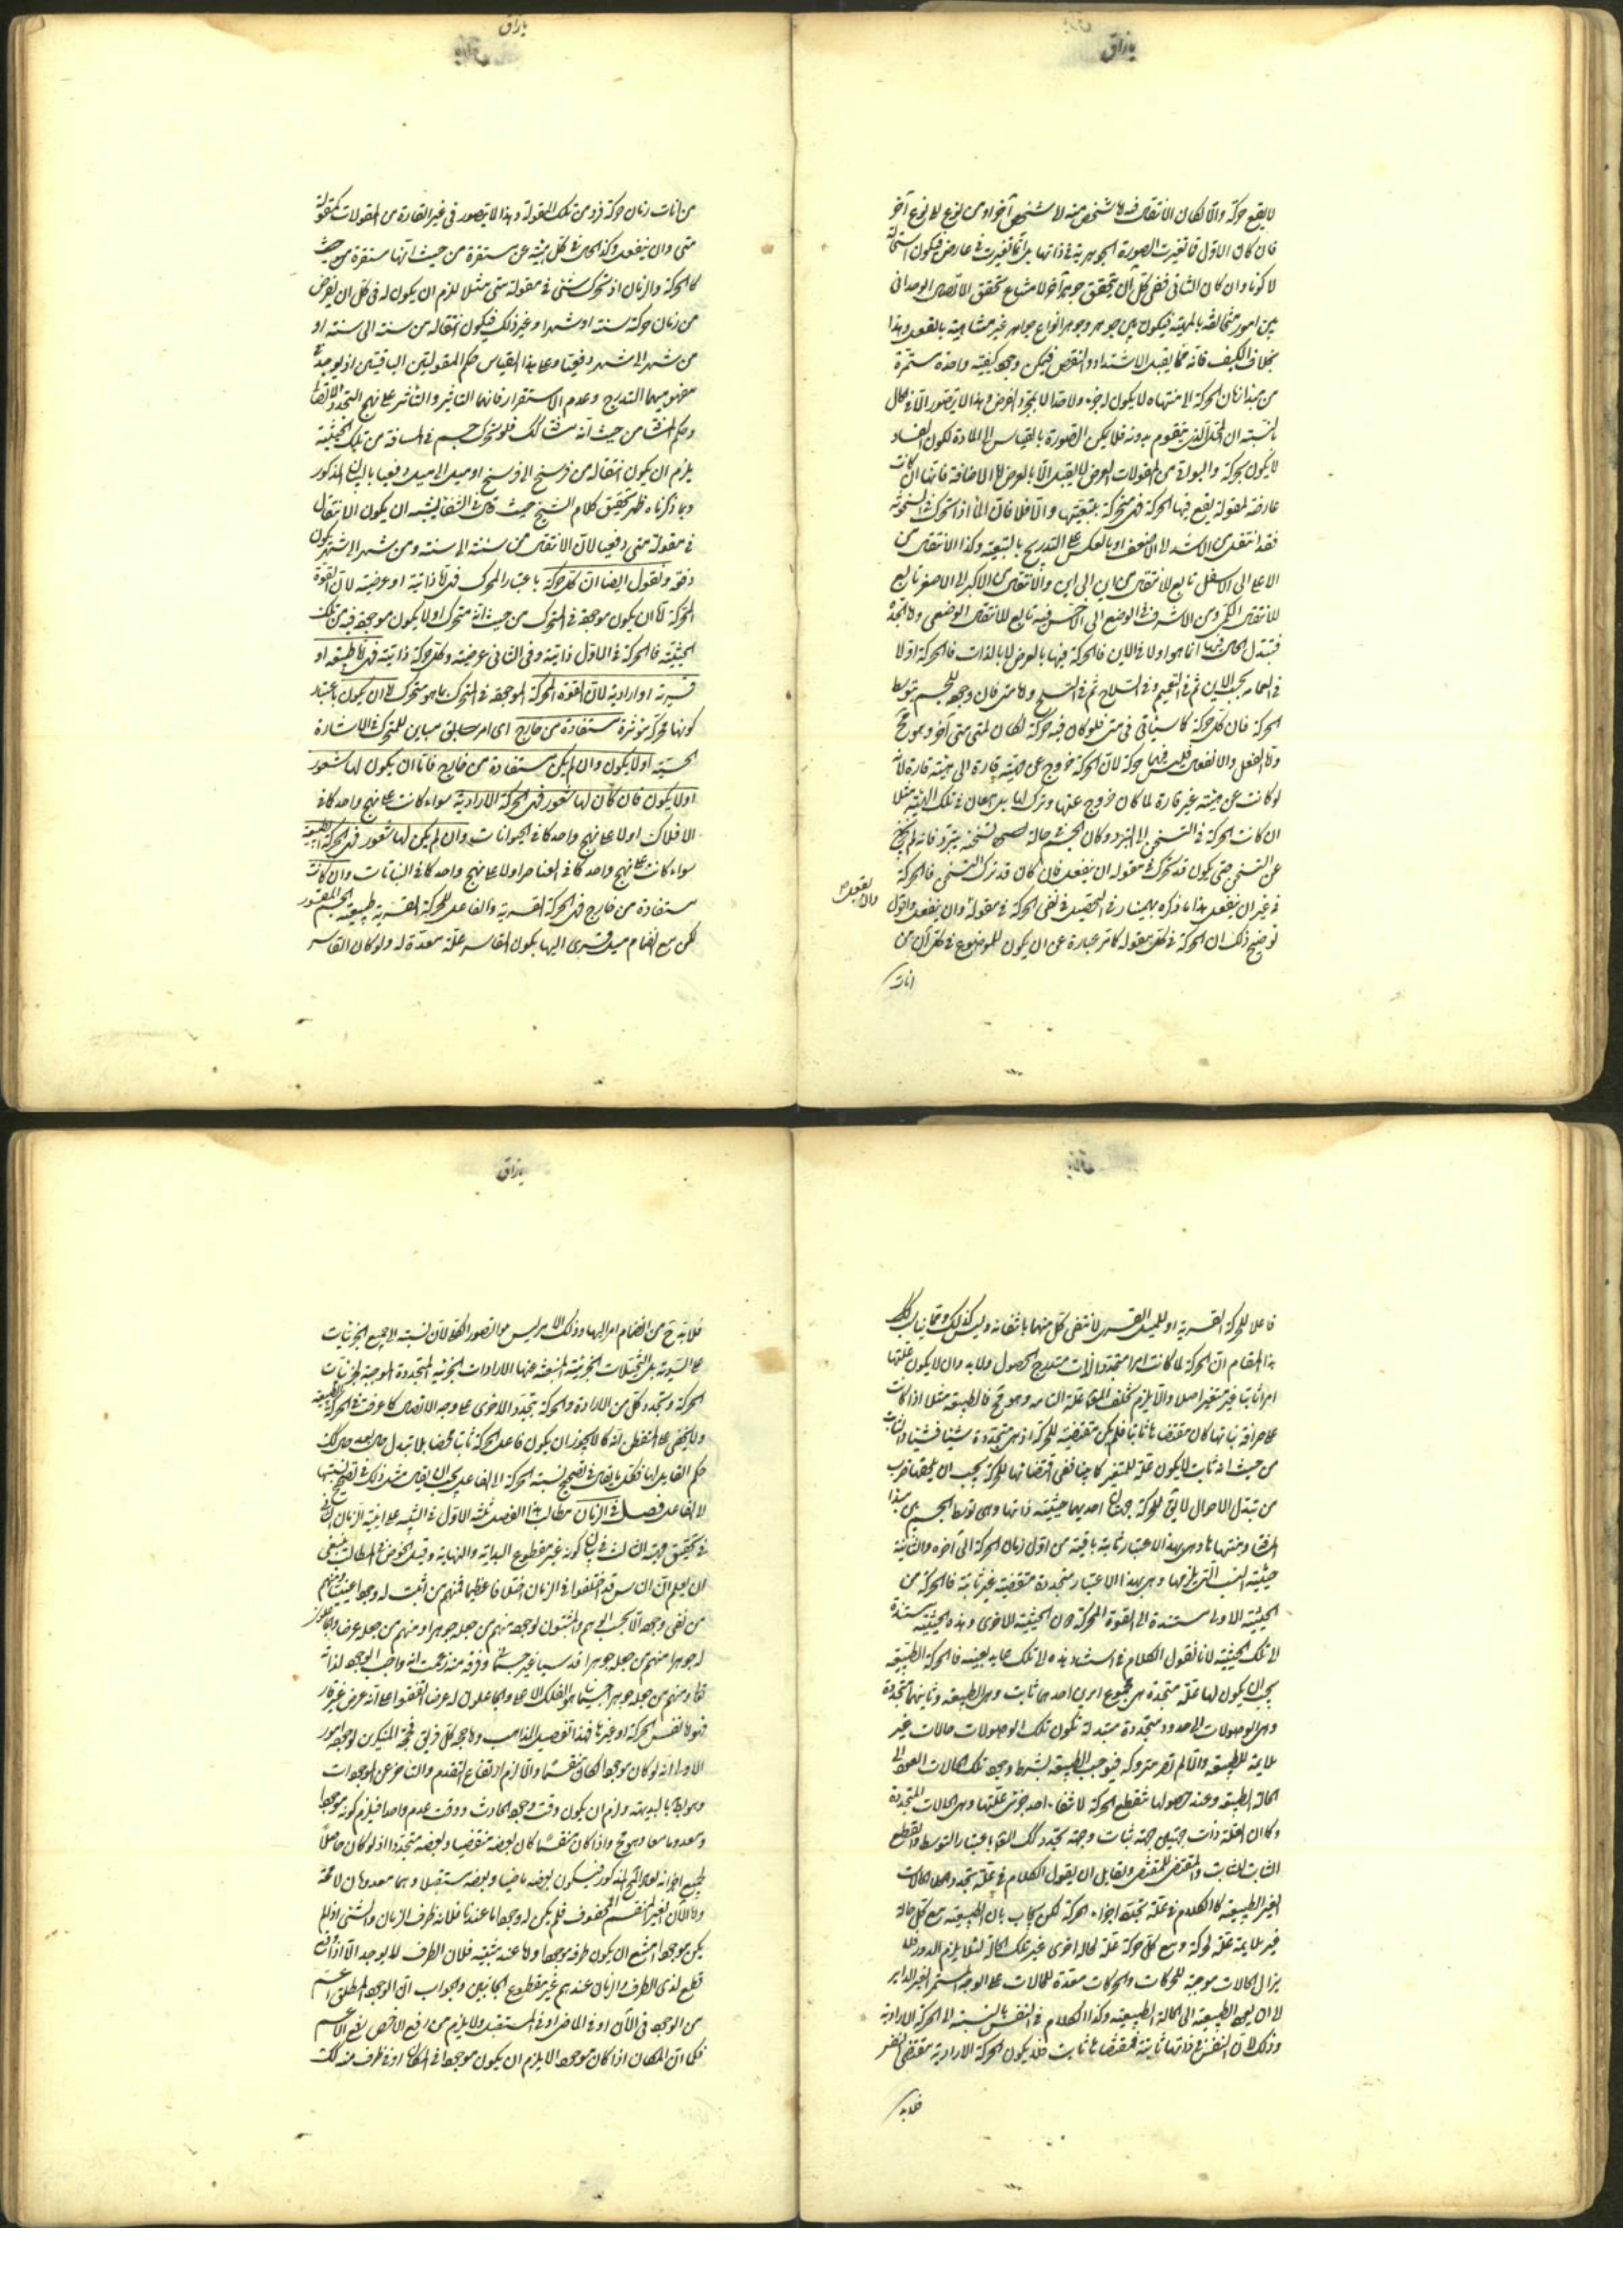 لا يقع حركة والا لكان الانتقال فيه من شخص منه الى شخص آخر او من نوع الى نوع آخر
فان كان الاول فما تغيرت الصورة الجوهرية في ذاتها بل انما تغيرت في عارض فيكون استحالة
لا كونا وان كان الثاني ففي كل آن يتحقق جوهر آخر لامتناع تحقق الاتصال الوحداني
بين امور متخالفة بالمهية فيكون بين جوهر وجوهر انواع جواهر غير متناهية بالفعل وهذا
بخلاف الكيف فانه مما يقبل الاشتداد والتنقص فيكون وجود كيفية واحدة مستمرة
من مبدأ زمان الحركة الى منتهاه لا يكون له جزء ولا حد الا بمجرد الفرض وهذا لا يتصور الا في حال
بالنسبة ان المحل الذي يتقوم بدونه فلا يكن الصورة بالقياس الى المادة لكون الفساد
لا يكون بحركة والبواقي من المقولات العرض لا يقبل الا بالعرض اما الاضافة فانها ان كانت
عارضة لمقولة يقع فيها الحركة فهي متحركة بتبعيتها والا فلا فان الماء اذا تحرك في السخونة
فقد انتقل من الاشد الى الاضعف او بالعكس على التدريج بالتبعية وكذا الانتقال من
الاعلى الى الاسفل تابع للانتقال من اين الى اين والانتقال من الاكبر الى الاصغر تابع
للانتقال الكمي ومن الاشرف في الوضع الى الاخس فيه تابع للانتقال الوضعي واما الجدة
فتبدل الحال فيها انما هو اولا في الاين فالحركة فيها بالعرض لا بالذات فالحركة اولا
في العمامة بحسب الاين ثم في التعمم وفي السلاح ثم في التسلح واما متى فان وجوده للجسم بتوسط
الحركة فان كل حركة كما سيأتي في متى فلو كان فيه حركة لكان لمتى متى آخر وهو مح
واما الفعل والانفعال فليس فيهما حركة لان الحركة خروج عن هيئة قارة الى هيئة قارة لانه
لو كانت عن هيئة غير قارة لما كان خروج عنها وترك لها بل امعان في تلك الهيئة مثلا
ان كانت الحركة في التسخن الى التبرد وكان الجسم في حالة تسخنه يتبرد فانه لم يخرج
عن التسخن حتى يكون قد تحرك في مقولة ان ينفعل فان كان قد ترك التسخن فالحركة
في غير ان ينفعل هذا ما ذكره بهمنيار في التحصيل في نفي الحركة في مقولة وان ينفعل واقول
وان يفعل
توضيح ذلك ان الحركة في كل مقولة كما مر عبارة عن ان يكون للموضوع في كل آن من
آنات
من آنات زمان حركة فرد من تلك المقولة وهذا لا يتصور في غير القارة من المقولات كمقولة
متى وان ينفعل وكذا الحال في كل هيئة غير مستقرة من حيث انها مستقرة من حيث
كالحركة والزمان اذ لو تحرك شيء في مقولة متى مثلا لزم ان يكون له في كل آن يفرض
من زمان حركته سنة او شهرا وغير ذلك فيكون انتقاله من سنة الى سنة او
من شهر الى شهر دفعيا وعلى هذا القياس حكم المقولتين الباقيتين اذ يوجد في
مفهوميهما التدرج وعدم الاستقرار فانهما التأثير والتأثر على نهج التجدد والانقضا
وحكم المسافة من حيث انه مسافة كذلك فلو تحرك جسم في المسافة من تلك الحيثية
يلزم ان يكون انتقاله من فرسخ الى فرسخ او ميل الى ميل دفعيا بالبيان المذكور
وبما ذكرناه ظهر تحقيق كلام الشيخ حيث قال في الشفا يشبه ان يكون الانتقال
في مقولة متى دفعيا لان الانتقال من سنة الى سنة ومن شهر الى شهر يكون
دفعة ونقول ايضا ان كل حركة باعتبار المحرك فهي اما ذاتية او عرضية لان القوة
المحركة اما ان يكون موجودة في المتحرك من حيث انه متحرك او لا يكون موجودة فيه من تلك
الحيثية فالحركة في الاول ذاتية وفي الثاني عرضية وكل حركة ذاتية فهي اما طبيعية او
قسرية او ارادية لان القوة المحركة الموجودة في المتحرك بما هو متحرك اما ان يكون باعتبار
كونها محركة مؤثرة مستفادة من خارج اى امر خارج مباين للمتحرك في الاشارة
الحسية او لا يكون وان لم يكن مستفادة من خارج فاما ان يكون لها شعور
او لا يكون فان كان لها شعور فهي الحركة الارادية سواء كانت على نهج واحد كما في
الافلاك او لا على نهج واحد كما في الحيوانات وان لم يكن لها شعور فهي الحركة الطبيعية
سواء كانت على نهج واحد كما في العناصر او لا على نهج واحد كما في النباتات وان كانت
مستفادة من خارج فهي الحركة القسرية والفاعل للحركة القسرية طبيعة الجسم المقسور
لكن مع انضمام ميل قسرى اليها يكون القاسر علة معدة له ولو كان القاسر
فاعلا للحركة القسرية او للميل القسرى لانتفى كل منهما بانتفائه وليس كذلك ومما يناسب ذكره
هذا المقام ان الحركة لما كانت امرا متجدد الذات متدرج الحصول فلا بد وان لا يكون علتها
امرا ثابتا غير متغير اصلا والا يلزم تخلف المع عن علته التامة وهو مح فالطبيعة مثلا اذا كانت
على صرافة ثباتها كان مقتضاها ثابتا فلم يكن مقتضية للحركة اذ هي متجددة شيئا فشيئا والثابت
من حيث انه ثابت لا يكون علة للمتغير كما بينا ففي اقتضائها للحركة يجب ان يلحقها ضرب
من تبدل الاحوال لا يق للحركة جهتان احديهما حيثية ذاتها وهي توسط الجسم بين مبدأ
المسافة ومنتهاها وهي بهذا الاعتبار ثابتة باقية من اول زمان الحركة الى آخره والثانية
حيثية النسب التي تلزمها وهي بهذا الاعتبار متجددة متقضية غير ثابتة فالحركة من
الحيثية الاولى مستندة الى القوة المحركة من الحيثية الاخرى وهذه الحيثية مستندة
الى تلك الحيثية لانا نقول الكلام في استناد هذه الى تلك عايد بعينه فالحركة الطبيعية
يجب ان يكون لها علة متجددة هي مجموع امرين احدهما ثابت وهي الطبيعة وثانيهما متجددة
وهي الوصولات الى حدود متجددة متبدلة تكون تلك الوصولات حالات غير
ملايمة للطبيعة والا لم تصر متروكة فيوجب الطبيعة بشرط وجود تلك الحالات العود الى
الحالة الطبيعية وعند حصولها تنقطع الحركة لانتفاء احد جزئي علتها وهي الحالات المتجددة
وكما ان العلة ذات جهتين جهة ثبات وجهة تجدد كذلك المع باعتبار التوسط والقطع
الثابت للثابت والمتقضي للمتقضي ولقايل ان يقول الكلام في علة تجدد هذه الحالات
الغير الطبيعية كالكلام في علة تجدد اجزاء الحركة لكن يجاب بان الطبيعة مع كل حالة
غير ملايمة علة لحركة ومع كل حركة علة لحالة اخرى غير تلك الحالة لئلا يلزم الدور فلا
يزال الحالات موجبة للحركات والحركات معدة للحالات على الوجه المستمر الغير الداير
الى ان يعود الطبيعة الى الحالة الطبيعية وكذا الكلام في النفس بالنسبة الى الحركة الارادية
وذلك لان النفس في ذاتها ثابتة فمقتضاها ثابت فلا يكون الحركة الارادية مقتضى النفس
فلا بد
فلا بد ح من انضمام امر اليها وذلك الامر ليس هو التصور الكلي لان نسبته الى جميع الجزئيات
على السوية بل التخيلات الجزئية المنبعثة عنها الارادات الجزئية المتجددة الموجبة لجزئيات
الحركة وبتجدد كل من الارادة والحركة بتجدد الاخرى على وجه الاتصال كما عرفت في الحركة الطبيعية
ولا يخفى على المتفطن انه كما لا يجوز ان يكون فاعل الحركة ثابتا محضا بلا تبدل حال بعد حال كذلك
حكم القابل لها فكل ما يقال في تصحيح نسبة الحركة الى الفاعل يجب ان يقال مثل ذلك في تصحيح نسبتها
الى القابل فصل في الزمان مطالب هذا الفصل ثلثة الاول في التنبيه على انية الزمان الثاني
في تحقيق مهيته الثالث في بيان كونه غير مقطوع البداية والنهاية وقبل الخوض في المطالب ينبغي
ان يعلم ان الناس قد اختلفوا في الزمان اختلافا عظيما فمنهم من اثبت له وجودا عينيا ومنهم
من نفى وجوده الا بحسب الوهم والمثبتون لوجوده منهم من جعله جوهرا ومنهم من جعله عرضا والجاعلون
له جوهرا منهم من جعله جوهرا قدسيا غير جسماني وفرقة منهم زعمت انه واجب الوجود لذاته
تعالى ومنهم من جعله جوهرا جسمانيا هو الفلك الاعلى والجاعلون له عرضا اتفقوا على انه عرض غير قار
فهو اما نفس الحركة او غيرها فهذا تفصيل المذاهب واما حجة كل فريق فحجة المنكرين لوجوده امور
الاول انه لو كان موجودا لكان منقسما والا لزم ارتفاع التقدم والتأخر عن الموجودات
وهو بط بالبديهة ولزم ان يكون وقت وجود الحادث ووقت عدمه واحدا فيلزم كونه موجودا
ومعدوما معا وهو مح واذا كان منقسما كان بعضه منقضيا وبعضه متجددا اذ لو كان حاصلا
بجميع اجزائه لعاد المح المذكور فيكون بعضه ماضيا وبعضه مستقبلا وهما معدومان لا محة
واما الآن الغير المنقسم المحفوف فلم يكن له وجود اما عندنا فلانه طرف الزمان والشيء اذا لم
يكن موجودا امتنع ان يكون طرفه موجودا واما عند مثبتيه فلان الطرف لا يوجد الا اذا وقع
قطع لذى الطرف والزمان عندهم غير مقطوع الجانبين والجواب ان الوجود المطلق اعم
من الوجود في الآن او في الماضي او في المستقبل ولا يلزم من رفع الاخص رفع الاعم
فكما ان المكان اذا كان موجودا لا يلزم ان يكون موجودا في المكان او في طرف منه كذلك